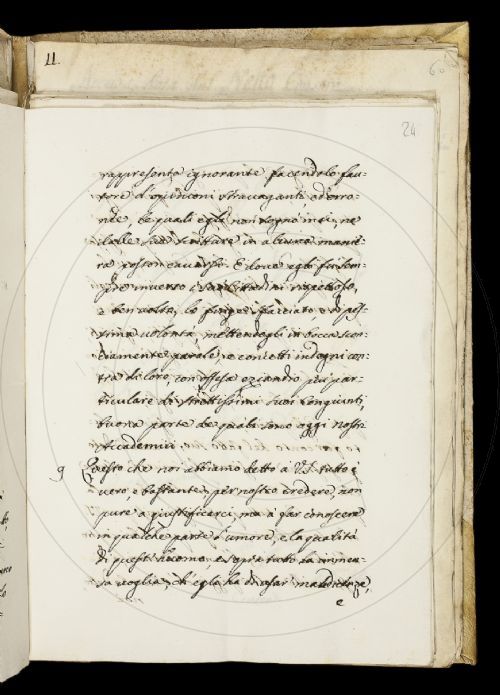 11.
24
rappresenta ignorante facendolo fau-
tore d'opinioni stravaganti, ed erro-
nee, le quali egli non sognò mai, ne
dalle sue scritture in alcuna manie-
ra posson cavarsi. E dove egli fu sem-
pre inverso i suoi rispettoso,
e benvolto, lo pinge sfacciato, e di pes-
sima volontà, mettendogli in bocca scon-
ciamente parole, e concetti indegni con-
tra di loro, con offesa eziandio più par-
ticulare de strettissimi suoi congiunti,
buona parte de quali sono oggi nostri
Accademici.
9 Questo che noi abbiamo detto à V.S. tutto è
vero, e bastante, per nostro credere, non
pure a giustificarci, ma à far conoscere
in qualche parte l'umore, e la qualità
di questi huomo, e sopratutto la immen-
sa voglia, ch'egli ha di usar maldicenze,
e